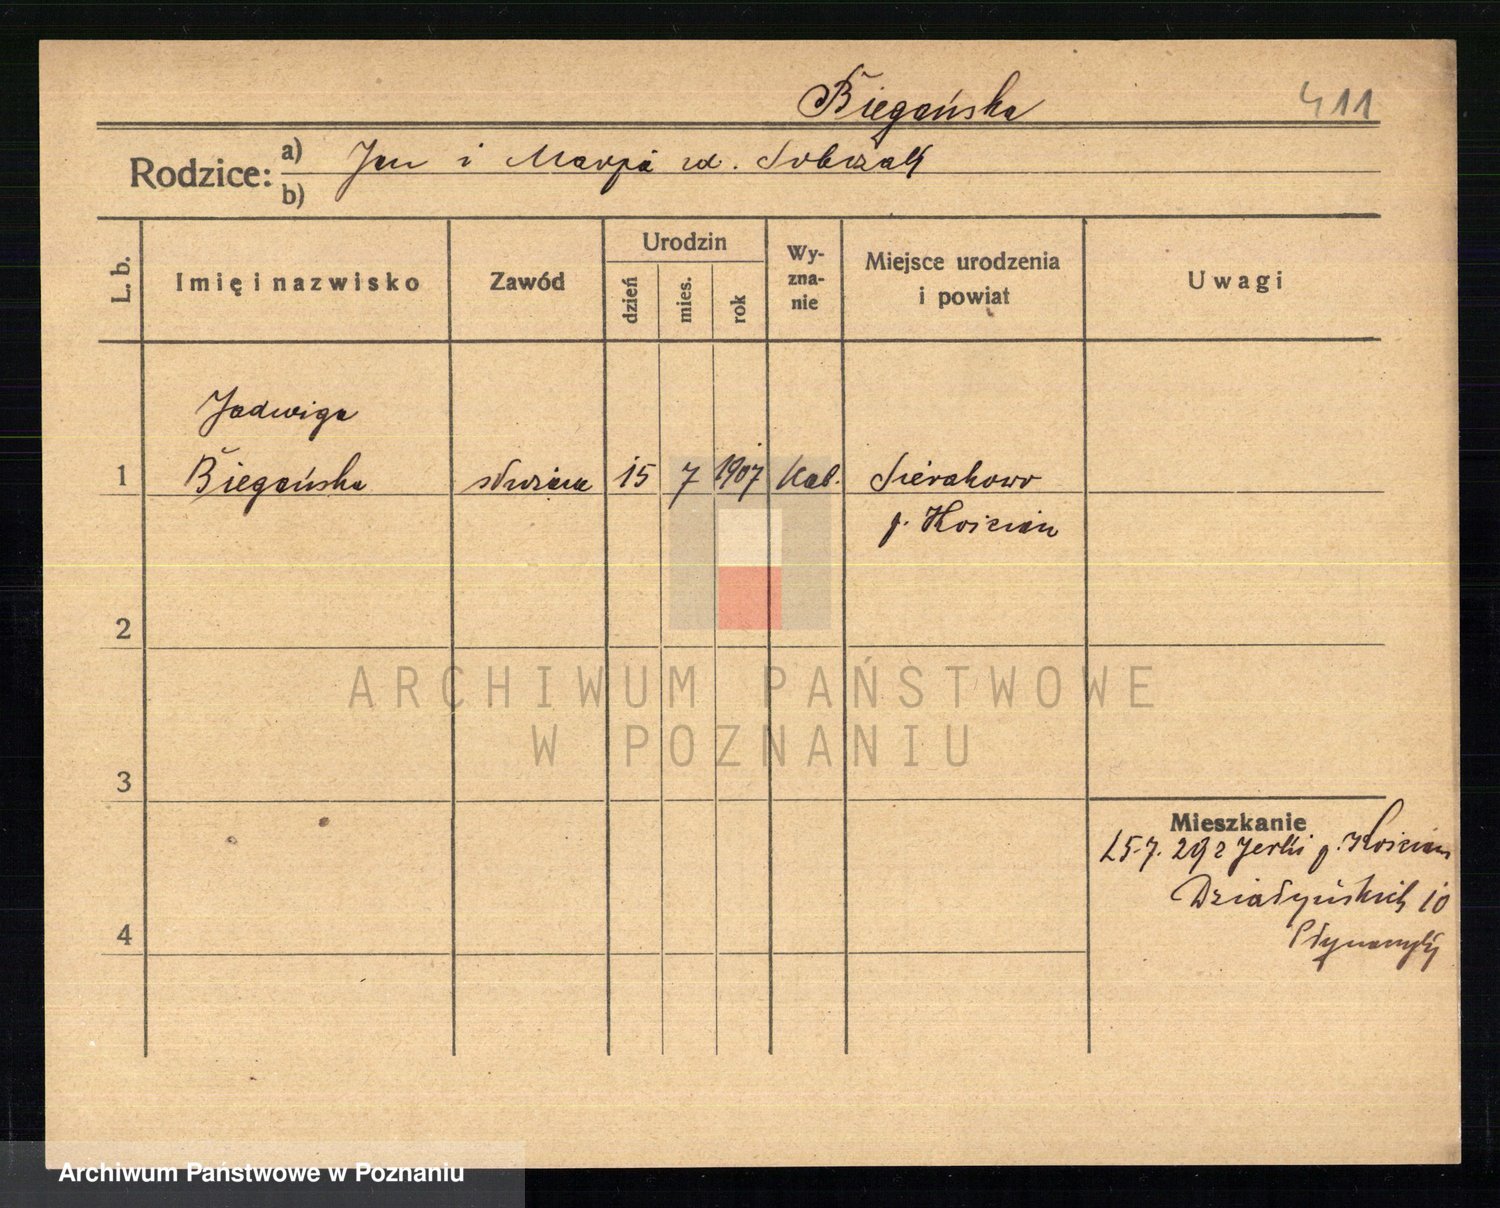 Biegańska 411
Rodzice: a) Jan i Marja zd. Sobczak
b)
L. b. Imię i nazwisko Zawód Urodzin dzień mies. rok Wyznanie Miejsce urodzenia i powiat Uwagi
Jadwiga
1 Biegańska służąca 15 7 1907 kat. Sierakowo
p. Kościan
2
ARCHIWUM PAŃSTWOWE
W POZNANIU
3
Mieszkanie
25.7.29 z Jerki p. Kościan
Działyńskich 10
4
Archiwum Państwowe w Poznaniu